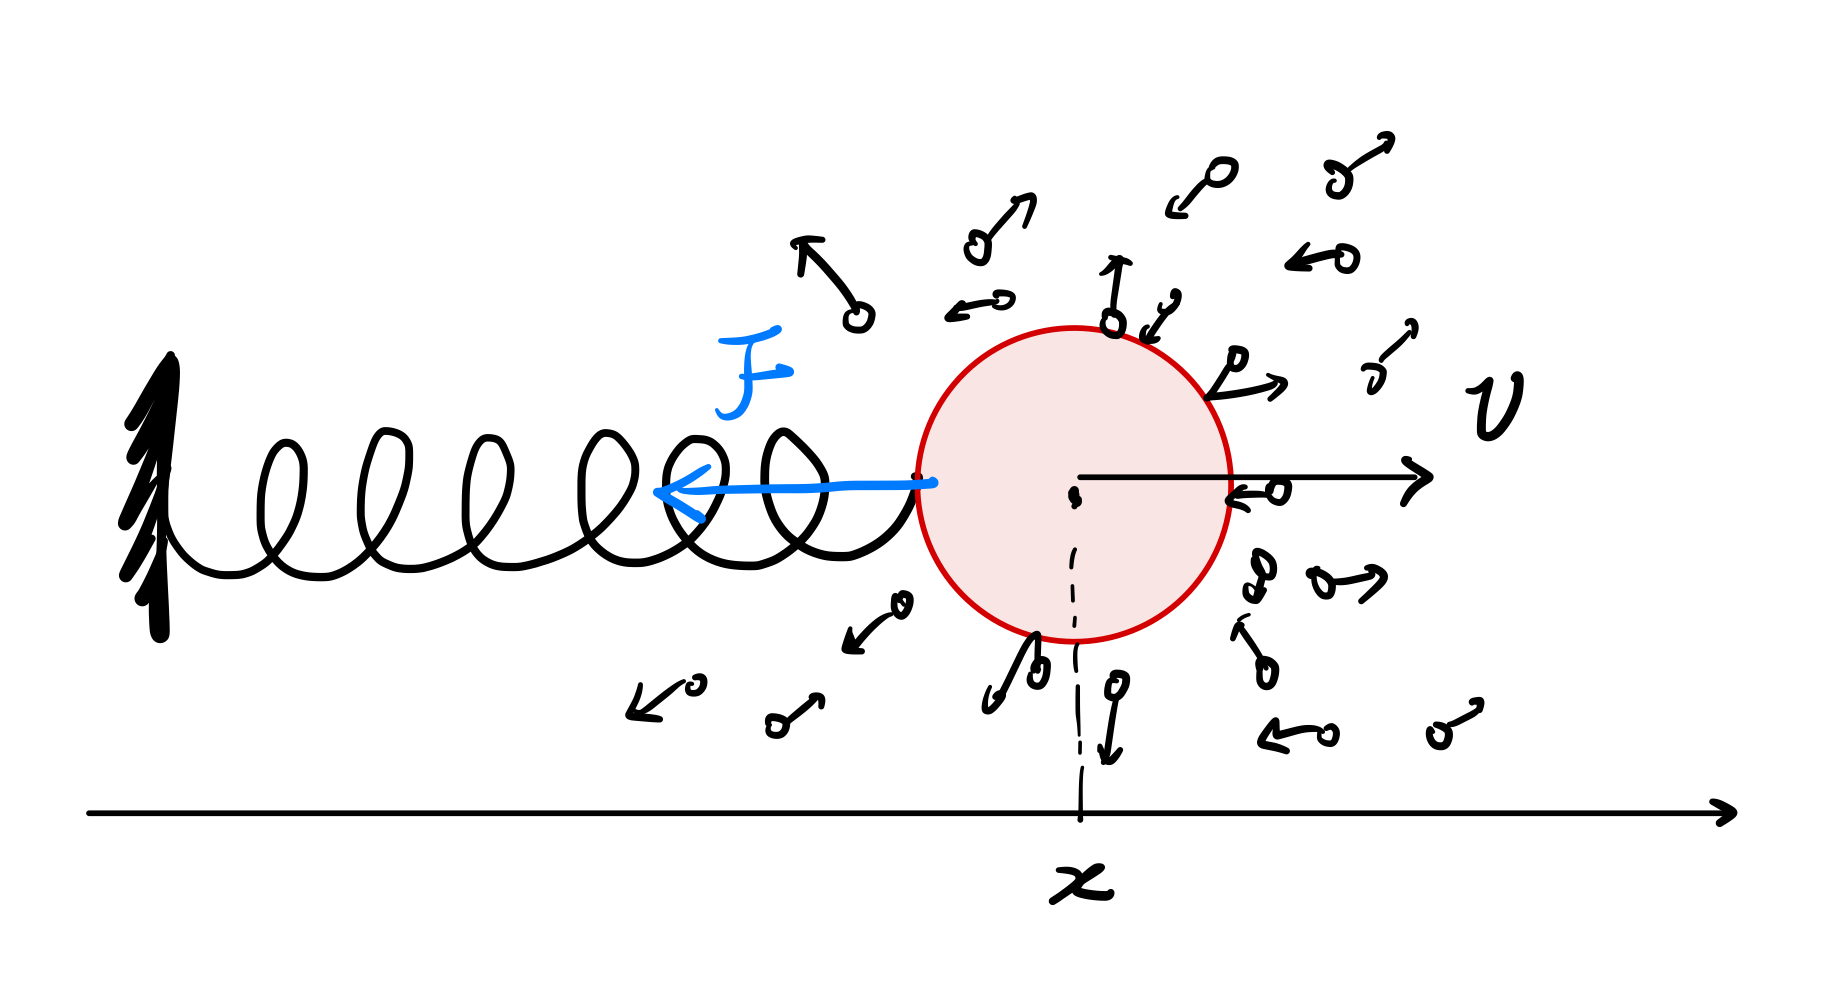 F
v
x